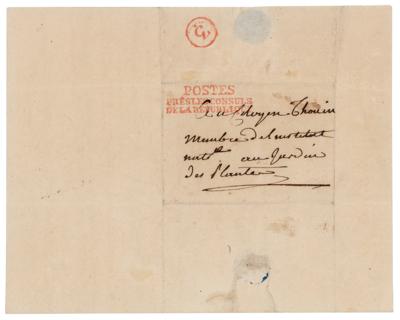 POSTES
PRÈS LES CONSULS
DE LA RÉPUBLIQUE
Au Citoyen Thouin
Membre de l'institut
natl. au Jardin
des Plantes